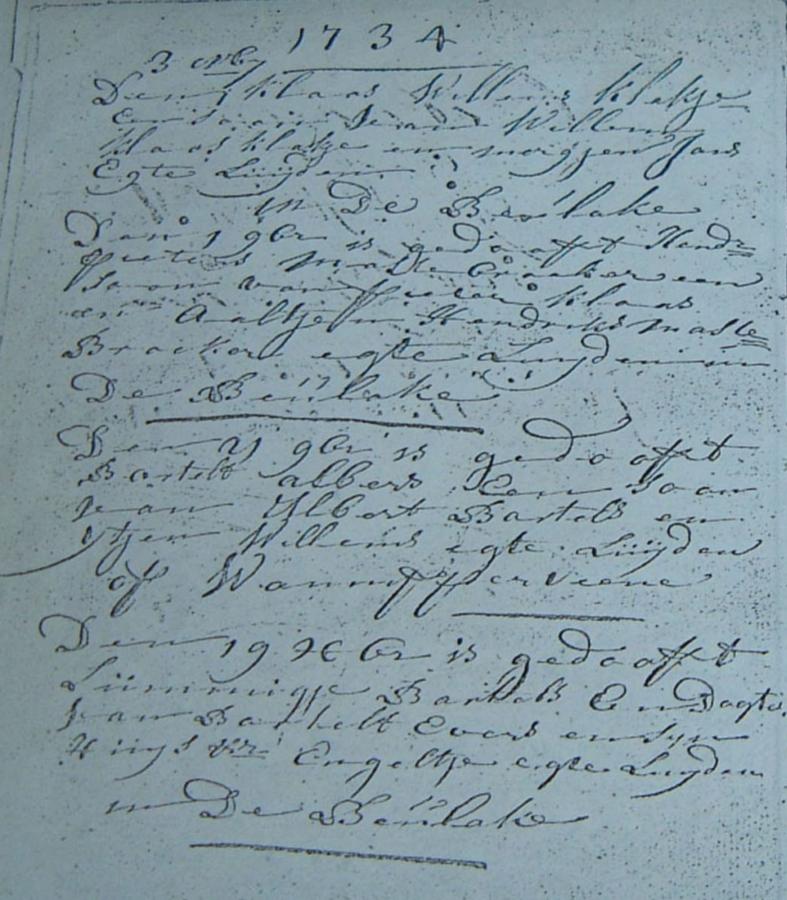 1734
3 9br
Den Klaas Willems Klatje
een soon van Willem
Klaas Klatje en Jans
Egte Luyden
in De Beulake
Den 9br is gedoofft Hendr
pieters Maste Broeker een
soon van pieter Klaas
en Aaltjen Hendriks Maste
Broeker egte Luyden in
De Beulake
Den 21 9br is gedoofft
Bartelt albers Een Soon
van Albert Bartels en
Willems egte Luyden
of Wannepperveene
Den 19 XCbr is gedoofft
Lummigje Bartels Een Dogter
van Bartelt Evers en Syn
Huys vr Engeltje egte Luyden
in De Beulake